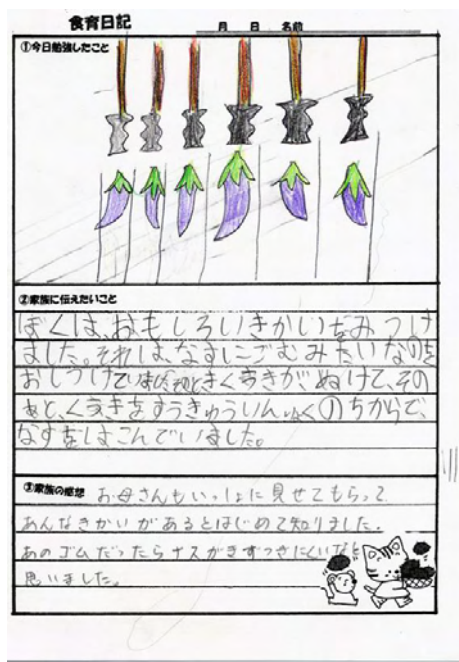 食育日記
月 日 名前
①今日勉強したこと
②家族に伝えたいこと
ぼくは、おもしろいきかいをみつけ
ました。それは、なすにごむみたいなのを
おしつけていました。そのときくうきがぬけて、その
あと、くうきをすうきゅういんりょくのちからで、
なすをはこんでいました。
③家族の感想 お母さんもいっしょに見せてもらって
あんなきかいがあるとはじめて知りました。
あのゴムだったらナスがきずつきにくいなと
思いました。